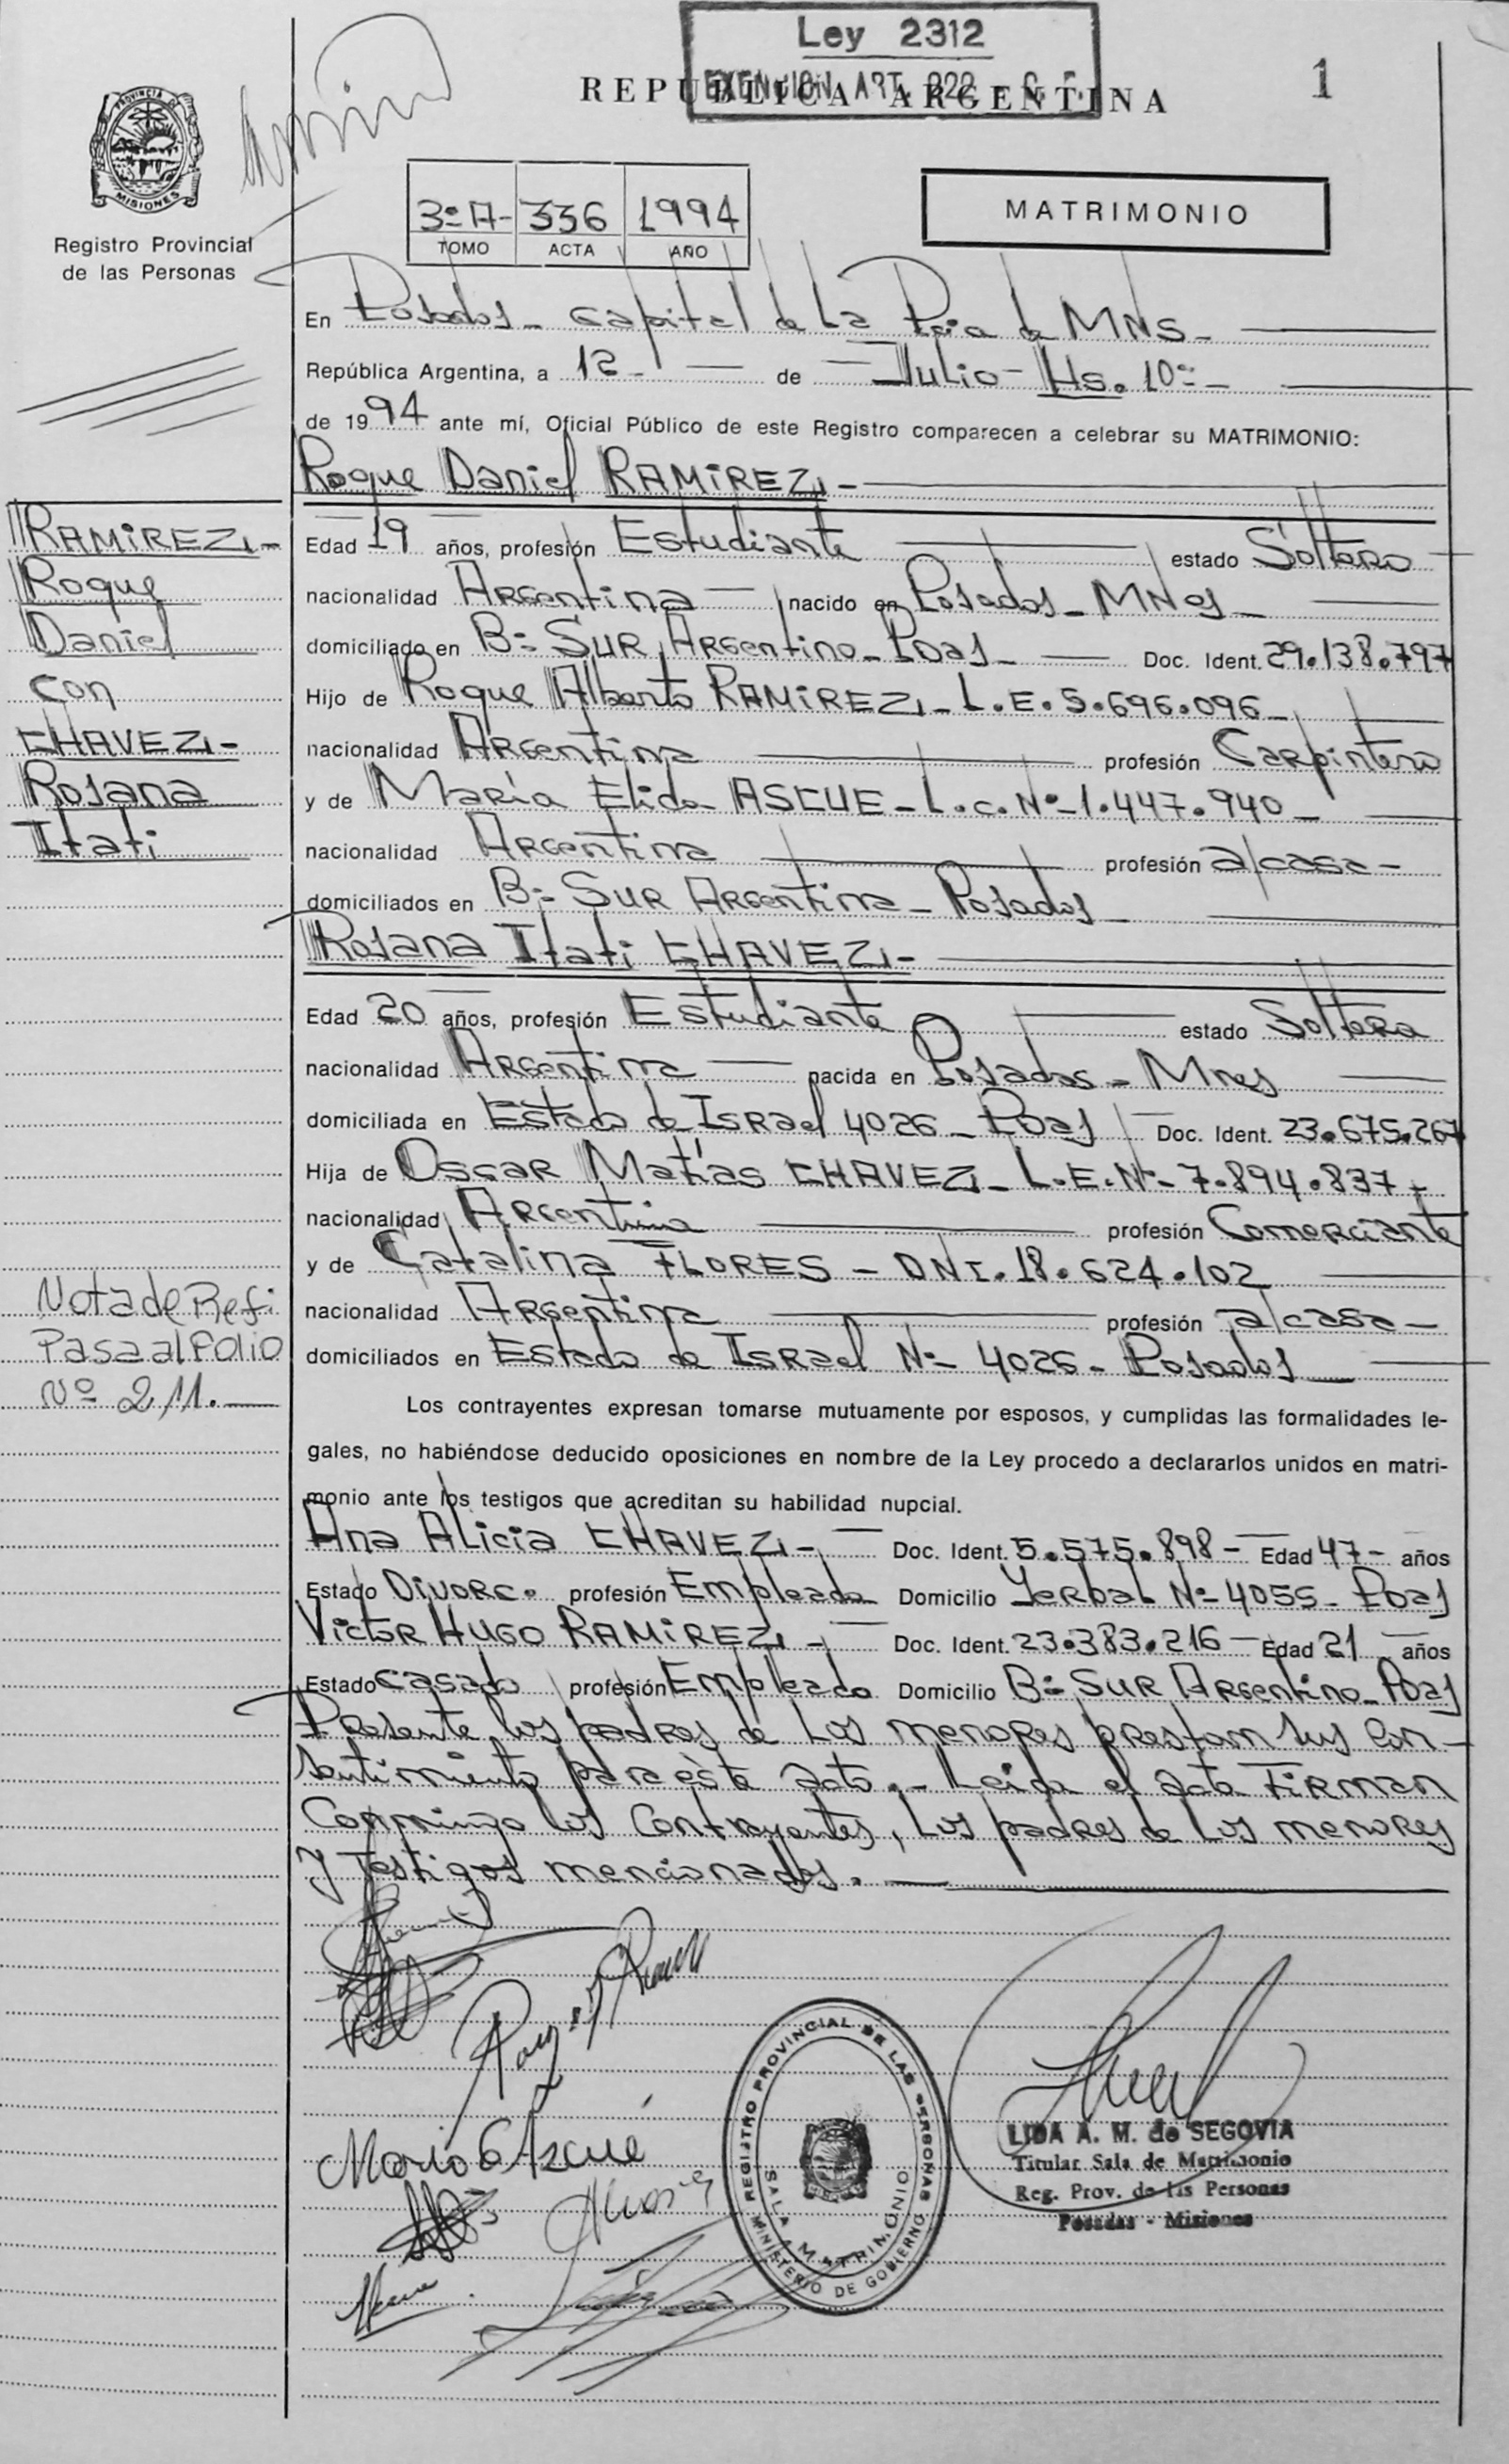 Ley 2312
EXENCION ART. 222 C. F.
REPUBLICA ARGENTINA
1
PROVINCIA DE
MISIONES
Registro Provincial
de las Personas
3º A- 336 1994
TOMO ACTA AÑO
MATRIMONIO
En Posadas - Capital de La Pcia de MNS -
República Argentina, a 12 - de Julio - Hs. 10 -
de 1994 ante mí, Oficial Público de este Registro comparecen a celebrar su MATRIMONIO:
Roque Daniel RAMIREZ -
Edad 19 años, profesión Estudiante estado Soltero
nacionalidad Argentina nacido en Posadas - MNes
domiciliado en Bº Sur Argentino - Pdas - Doc. Ident. 29.138.797
Hijo de Roque Alberto RAMIREZ - L.E. 5.696.096 -
nacionalidad Argentina profesión Carpintero
y de María Elida ASCUE - L.C. Nº 1.447.940 -
nacionalidad Argentina profesión a/casa -
domiciliados en Bº Sur Argentina - Posadas -
Rosana Itati CHAVEZ -
Edad 20 años, profesión Estudiante estado Soltera
nacionalidad Argentina nacida en Posadas - Mnes
domiciliada en Estado de Israel 4026 - Pdas Doc. Ident. 23.675.267
Hija de Oscar Matías CHAVEZ - L.E. Nº 7.894.837 -
nacionalidad Argentina profesión Comerciante
y de Catalina FLORES - DNI. 18.624.102
nacionalidad Argentina profesión a/casa -
domiciliados en Estado de Israel Nº 4026 - Posadas
Los contrayentes expresan tomarse mutuamente por esposos, y cumplidas las formalidades le-
gales, no habiéndose deducido oposiciones en nombre de la Ley procedo a declararlos unidos en matri-
monio ante los testigos que acreditan su habilidad nupcial.
Ana Alicia CHAVEZ - Doc. Ident. 5.575.898 - Edad 47 - años
Estado Divorc. profesión Empleada Domicilio Yerbal Nº 4055 - Pdas
Victor Hugo RAMIREZ - Doc. Ident. 23.383.216 - Edad 21 años
Estado Casado profesión Empleado Domicilio Bº Sur Argentino - Pdas
Presente los padres de Los menores prestam sus con-
sentimiento para este acto. - Leida el acta Firman
Conmigo los Contrayentes, Los padres de Los menores
y Testigos mencionados.
RAMIREZ -
Roque
Daniel
con
CHAVEZ -
Rosana
Itati
Nota de Ref:
Pasa al Folio
Nº 211.
REGISTRO PROVINCIAL DE LAS PERSONAS
SALA MATRIMONIO
MINISTERIO DE GOBIERNO
LIDA A. M. de SEGOVIA
Titular Sala de Matrimonio
Reg. Prov. de las Personas
Posadas - Misiones